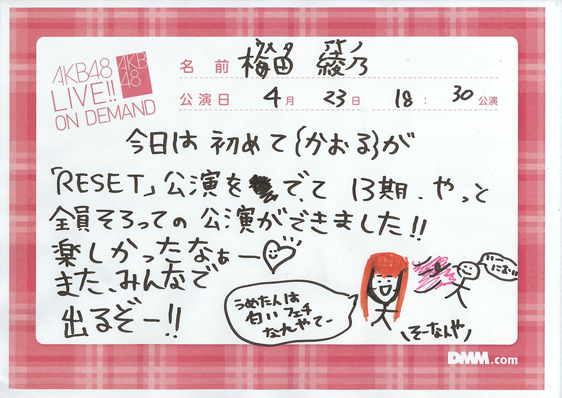 AKB48
LIVE!!
ON DEMAND
AKB
48
名前 梅田 綾乃
公演日 4月 23日 18:30公演
今日は初めて{かおる}が
「RESET」公演をでて 13期、やっと
全員そろっての公演ができました!!
楽しかったなぁー
また、みんなで
出るぞー!!
うめたんは
匂いフェチ
なんやてー
におい
そーなんや
DMM.com